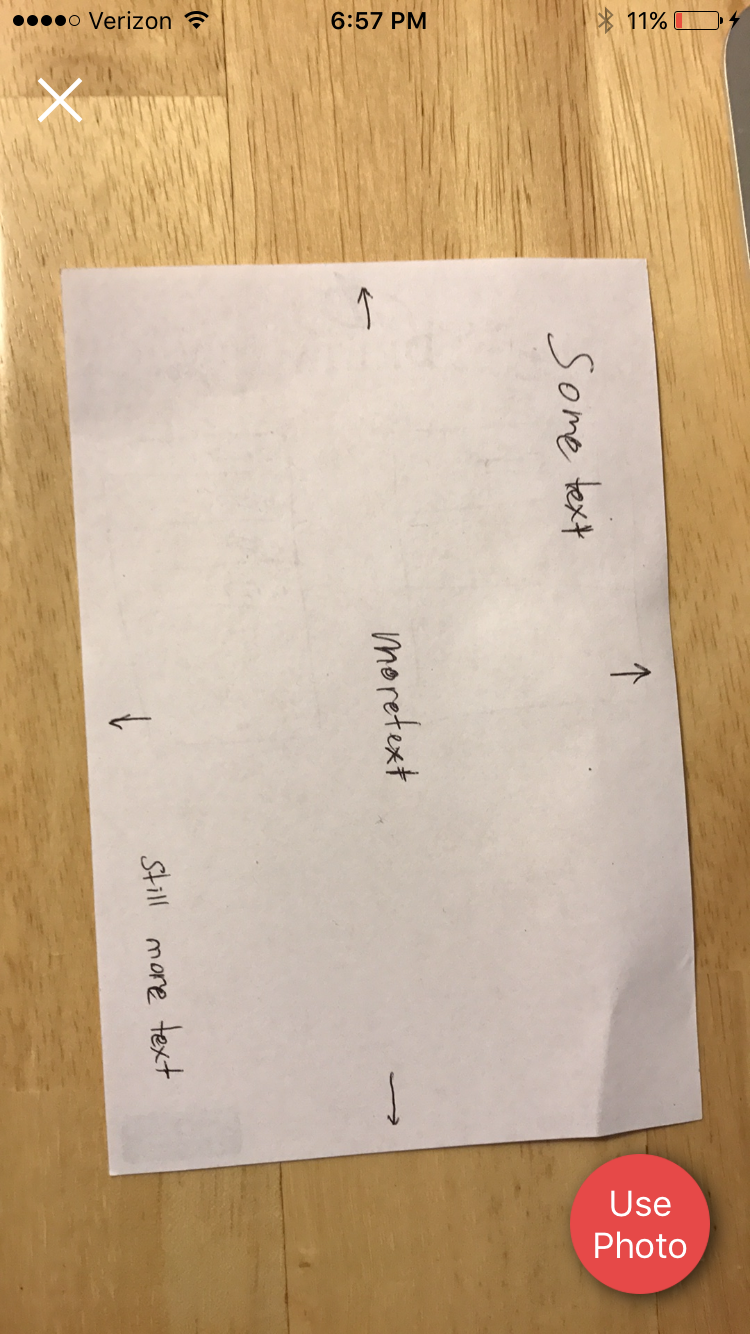 Verizon 6:57 PM 11%
Some text
moretext
still more text
Use
Photo